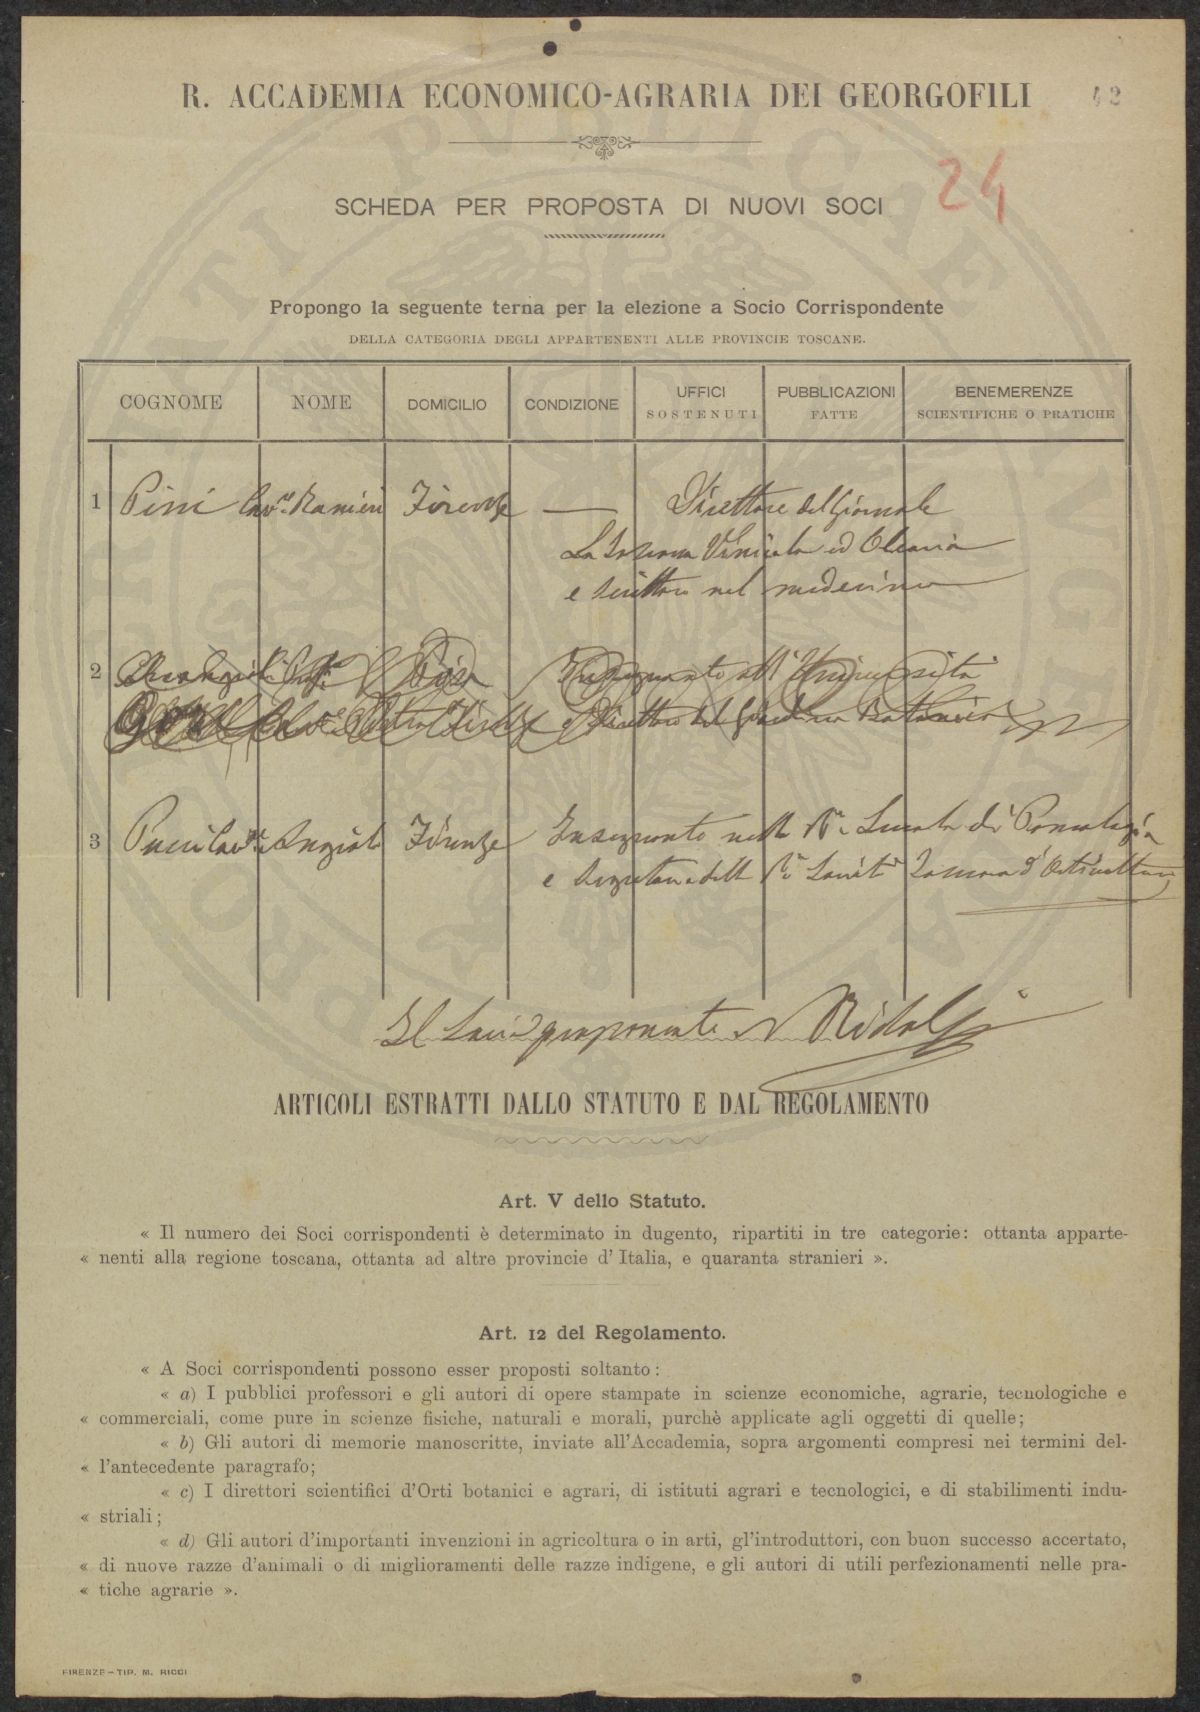 R. ACCADEMIA ECONOMICO-AGRARIA DEI GEORGOFILI
42
SCHEDA PER PROPOSTA DI NUOVI SOCI
24
Propongo la seguente terna per la elezione a Socio Corrispondente
DELLA CATEGORIA DEGLI APPARTENENTI ALLE PROVINCIE TOSCANE.
COGNOME NOME DOMICILIO CONDIZIONE UFFICI SOSTENUTI PUBBLICAZIONI FATTE BENEMERENZE SCIENTIFICHE O PRATICHE
1 Pini Cav.re Ranieri Firenze — Direttore del Giornale
La Toscana Vinicola ed Olearia
e scrittore nel medesimo
2 Arcangeli Prof. Pisa Insegnante all'Università
e Direttore del Giardino Botanico
3 Pucci Cav.re Angiolo Firenze Insegnante nella R.a Scuola di Pomologia
e Segretario della R.a Società Toscana d'Orticultura
Il Socio proponente N Ridolfi
ARTICOLI ESTRATTI DALLO STATUTO E DAL REGOLAMENTO
Art. V dello Statuto.
« Il numero dei Soci corrispondenti è determinato in dugento, ripartiti in tre categorie: ottanta apparte-
« nenti alla regione toscana, ottanta ad altre provincie d'Italia, e quaranta stranieri ».
Art. 12 del Regolamento.
« A Soci corrispondenti possono esser proposti soltanto:
« a) I pubblici professori e gli autori di opere stampate in scienze economiche, agrarie, tecnologiche e
« commerciali, come pure in scienze fisiche, naturali e morali, purchè applicate agli oggetti di quelle;
« b) Gli autori di memorie manoscritte, inviate all'Accademia, sopra argomenti compresi nei termini del-
« l'antecedente paragrafo;
« c) I direttori scientifici d'Orti botanici e agrari, di istituti agrari e tecnologici, e di stabilimenti indu-
« striali;
« d) Gli autori d'importanti invenzioni in agricoltura o in arti, gl'introduttori, con buon successo accertato,
« di nuove razze d'animali o di miglioramenti delle razze indigene, e gli autori di utili perfezionamenti nelle pra-
« tiche agrarie ».
FIRENZE—TIP. M. RICCI